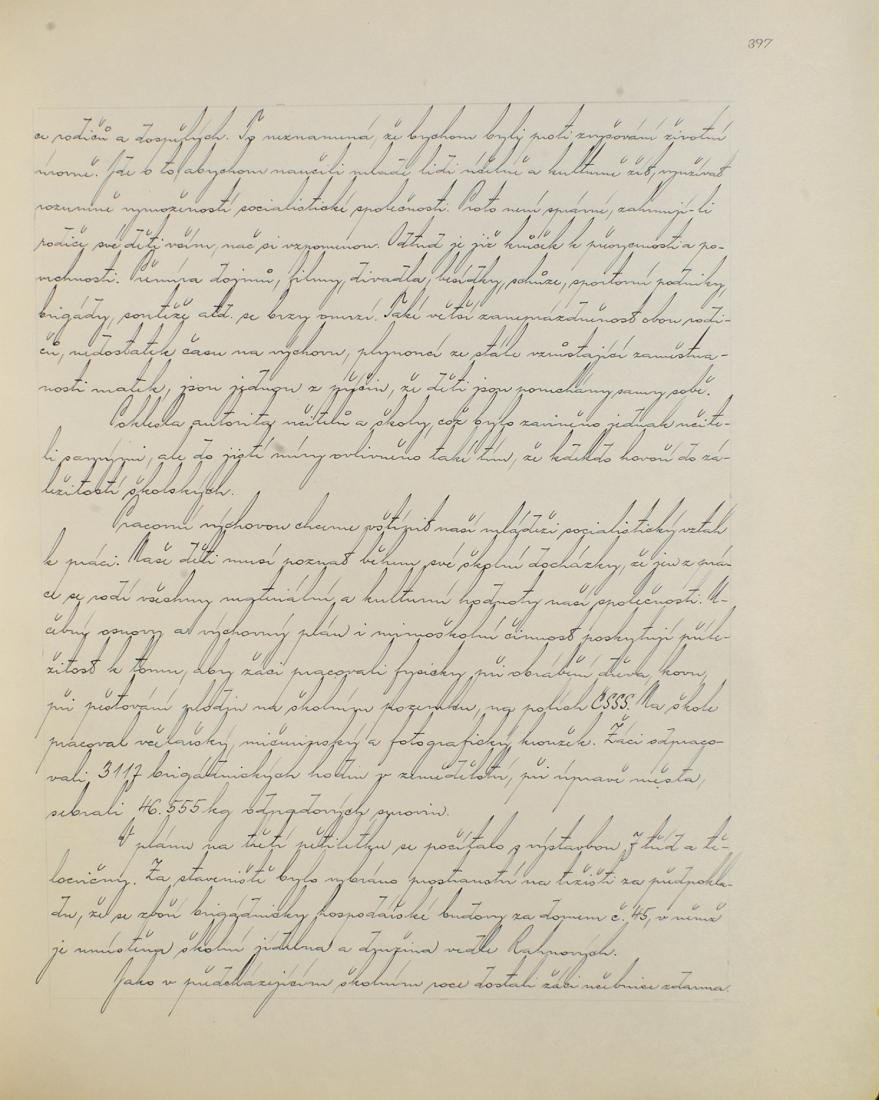 397
ce rodičů a dospělých. To neznamená, že bychom byli proti zvyšování životní
úrovně. Jde o to, abychom naučili mladé lidi účelně a kulturně žít, využívat
rozumně vymožeností socialistické společnosti. Proto není správné, zahrnují-li
rodiče své děti vším, nač si vzpomenou. Odtud je již krůček k přesycenosti a po-
vrchnosti. Přemíra dojmů, filmy, divadla, besídky, schůze, sportovní podniky,
brigády, soutěže atd. se brzy omrzí. Také větší zaneprázdněnost obou rodi-
čů, nedostatek času na výchovu, plynoucí ze stále vzrůstající zaměstna-
nosti matek, jsou jednou z příčin, že děti jsou ponechány samy sobě.
Poklesla autorita učitelů a školy, což bylo zaviněno jednak učite-
li samými, ale do jisté míry ovlivněno také tím, že kdekdo hovoří do zá-
ležitostí školských.
Pracovní výchovou chceme vštípit naší mládeži socialistický vztah
k práci. Naše děti musí poznat během své školní docházky, že jen z prá-
ce se rodí všechny materiální a kulturní hodnoty naší společnosti. U-
čebný osnovy a výchovný plán i mimoškolní činnost poskytují příle-
žitost k tomu, aby žáci pracovali fysicky při obrábění dřeva, kovu,
při pěstování plodin na školním pozemku, na polích ČSSS. Na škole
pracoval včelařský, mičurinský a fotografický kroužek. Žáci odpraco-
vali 3117 brigádnických hodin v zemědělství, při úpravě města,
sebrali 46.555 kg odpadových surovin.
V plánu na třetí pětiletku se počítalo s výstavbou 7 tříd a tě-
locvičny. Za staveniště bylo vybráno prostranství na tržišti za předpokla-
du, že se zboří brigádnicky hospodářské budovy za domem č. 45, v němž
je umístěna školní jídelna a družina vedle
Jako v předcházejícím školním roce dostali žáci učebnice zdarma.